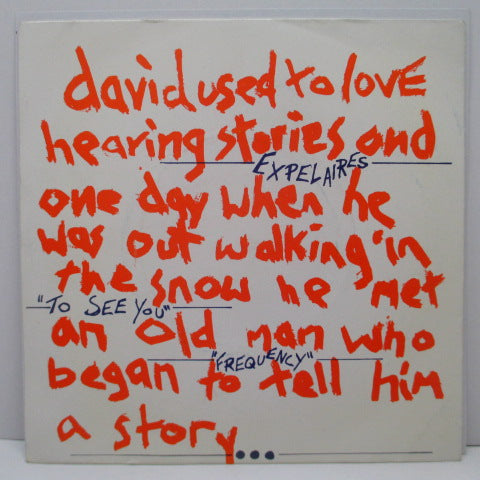 david used to lovE
hearing stories and
EXPELAIRES
one day when he
was out walking in
the snow he met
"TO SEE YOU"
an old man who
"FREQUENCY"
began to tell him
a story...